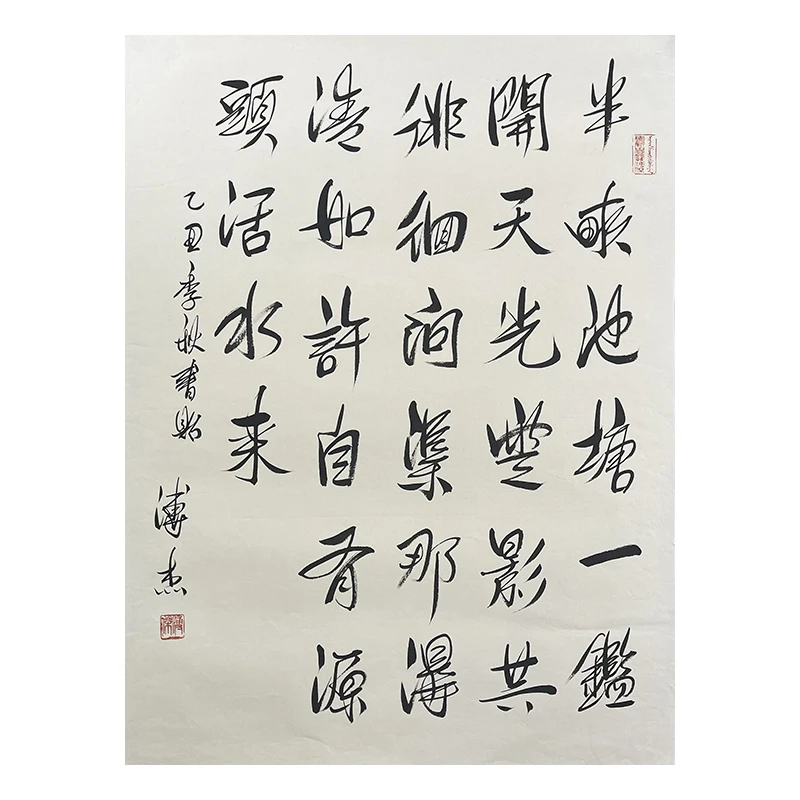 半畝池塘一鑑
開天光雲影共
徘徊問渠那得
清如許自有源
頭活水来
乙丑季秋書貽
溥杰